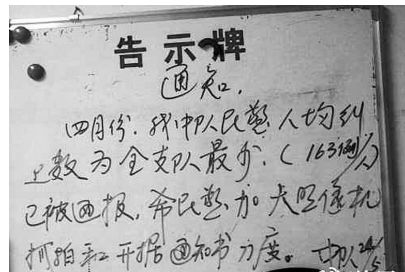 告示牌
通知.
四月份.我中队民警人均纠
违数为全支队最少.(163例/人)
已被通报,希民警加大照像机
抓拍和开据通知书力度。中队 24/5